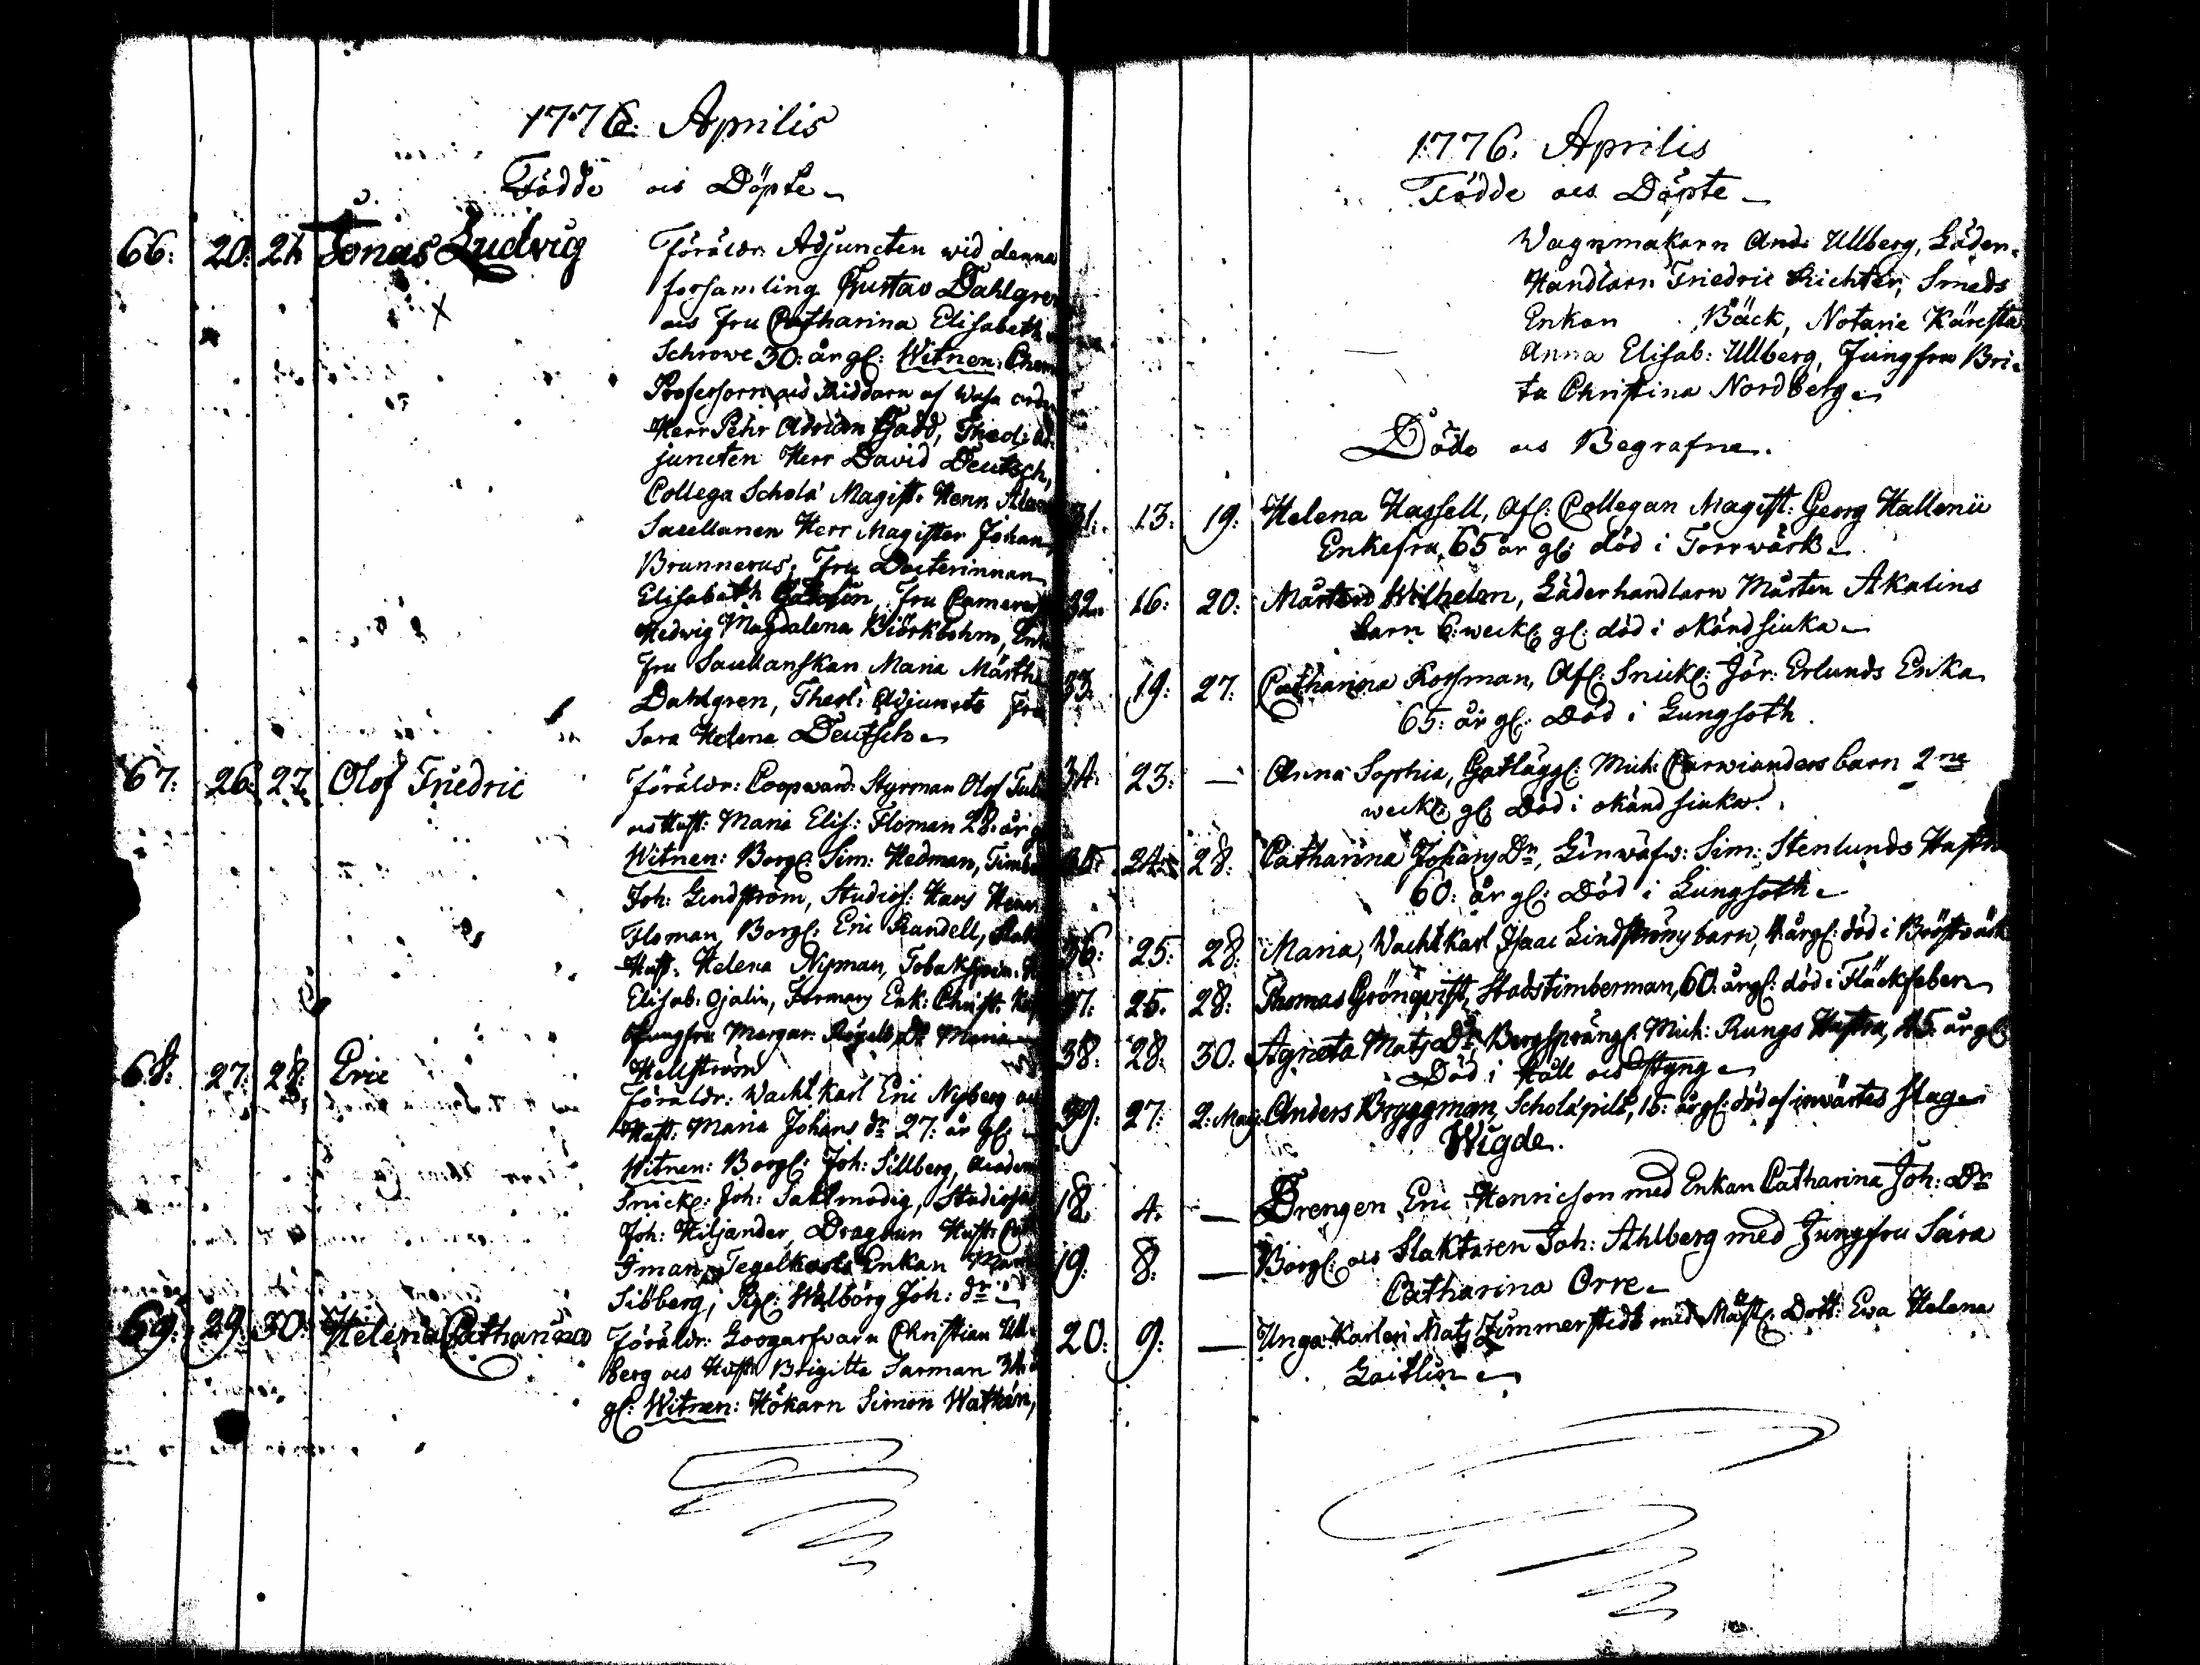 1776. Aprilis
Födde och Döpte
66: 20: 21 Jonas Ludvig
Föräldr: Adjuncten wid denna
församling Gustav Dahlgren
och Fru Catharina Elisabeth
Schrowe 30: år gl: Witnen: Chem
Professorn och Riddarn af Wasa orden
Herr Pehr Adrian Gadd, Theol: Ad-
juncten Herr David Deutsch,
Collega Scholæ Magist: Henr
Sacellanen Herr Magister Johan
Brunnerus, Fru Doctorinnan
Elisabeth Fru Camerer
Hedwig Magdalena Biörkbohm, Enk
Fru Sacellanskan Maria Märtha
Dahlgren, Theol: Adjuncts Fru
Sara Helena Deutsch
67: 26: 27 Olof Friedric
Föräldr: Coopward: Styrman Olof
och Hust: Maria Elis: Floman 28: år g
Witnen: Borgl: Sim: Hedman, Timb
Joh: Lindström, Studios: Hans Henr
Floman, Borgl: Eric Randell,
Hust: Helena Nyman, Tobaksspin:
Elisab: Ojalin, Formans Enk: Christ:
Jungfru Margar: Dr Maria
Hellström
68: 27: 28: Eric
Föräldr: Wacht Karl Eric Nyberg och
Hust: Maria Johans dr 27: år gl:
Witnen: Borgl: Joh: Sillberg, Academ
Snick: Joh: Saltmodig, Studios
Joh: Hiljander, Dragoun Hust:
Iman, Tegelkarls Enkan
Siöberg, Pig: Walborg Joh: dr
69: 29: 30: Helena Catharina
Föräldr: Loogarfvarn Christian Ull-
berg och Hust: Brigitta Sarman 34:
gl: Witnen: Hökarn Simon Wathén,
1776. Aprilis
Födde och Döpte
Wagnmakarn And: Ullberg, Läder-
Handlarn Friedric Richter, Smeds
Enkan Bäck, Notarie Käresta
Anna Elisab: Ullberg, Jungfru Bri-
ta Christina Nordberg
Döde och Begrafne.
31: 13: 19: Helena Hassell, Afl: Collegan Magist: Georg Hallenii
Enkefru, 65 år gl: död i Torrwärk
32: 16: 20: Mårten Wilhelm, Läderhandlarn Mårten Akalins
barn 6: weck: gl: död i okänd siuka
33: 19: 27: Catharina Rossman, Afl: Snick: Jör: Erlunds Enka
65: år gl: Död i Lungsoth.
34: 23: — Anna Sophia, Gatlägg: Mich: Carwianders barn 2ne
weck: gl: Död i okänd siuka.
35: 24: 28: Catharina Johans Dr, Linwäfw: Sim: Stenlunds Hustru
60: år gl: Död i Lungsoth
36: 25: 28: Maria, Wachtkarl Isaac Lindströms barn, 4 år gl: död i Bröstwärk
37: 25. 28: Thomas Grönqvist, Stadstimberman, 60: år gl: död i Fläckfeber
38: 28: 30: Agneta Mats Dr Bergspräng: Mich: Rungs Hustru, 45: år gl:
Död i Håll och Styng
39: 27: 2: Maji Anders Bryggman, Scholæpilt, 15: år gl: död af inwärtes slag
Wigde.
18. 4. — Drengen Eric Henricson med Enkan Catharina Joh: Dr
19: 8: — Borgl: och Slaktaren Joh: Ahlberg med Jungfru Sara
Catharina Orre
20: 9: — Unga Karlen Mats Zimmerstedt med Mäst: Dott: Eva Helena
Gaitlin